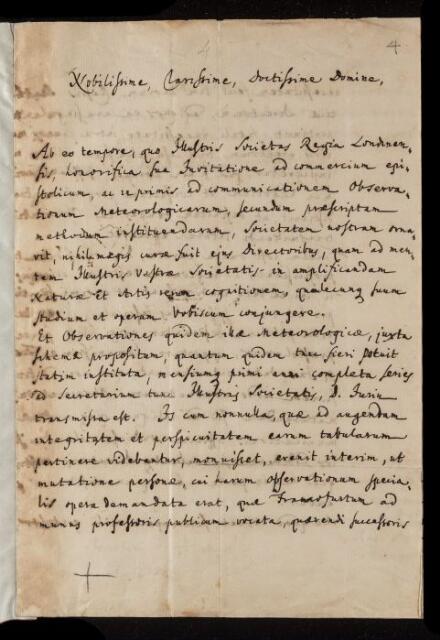 4
Nobilissime, Clarissime, Doctissime Domine,
Ab eo tempore, quo Illustris Societas Regia Londinen-
sis, honorifica sua Invitatione ad commercium epi-
stolicum, ac inprimis ad communicationem Observa-
tionum Meteorologicarum, secundum præscriptam
methodum instituendarum, Societatem nostram orna-
vit, nihil magis curæ fuit ejus Directoribus, quam ad men-
tem Illustris Vestræ Societatis in amplificandam
Naturæ Et Artis rerum cognitionem, qualecunq suum
studium et operam Vobiscum conjungere.
Et Observationes quidem illæ Meteorologicæ, juxta
schema propositum, quantum quidem tunc fieri potuit
statim institutæ, mensiumq primi anni completa series
ad Secretarium tunc Illustris Societatis, D. Jurin
transmissa est. Is cum nonnulla, quæ ad augendam
integritatem et perspicuitatem earum tabularum
pertinere videbantur, monuisset, evenit interim, ut
mutatione personæ, cui harum Observationum specia-
lis opera demandata erat, quæ Francofurtum ad
munus professoris publicum vocata, quærendi successoris